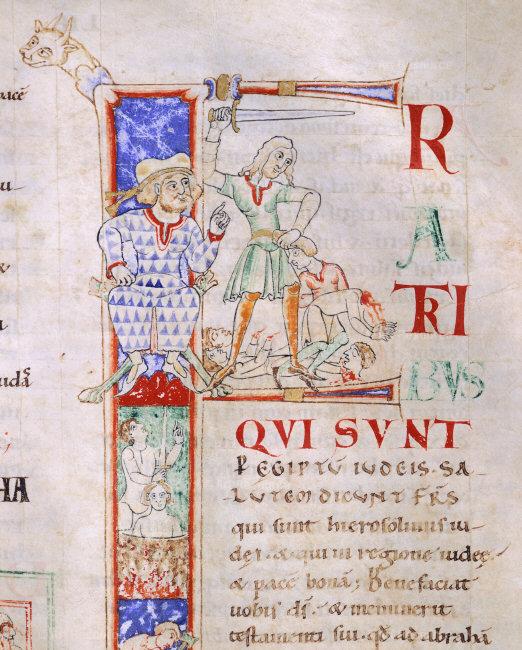 F R
A
TRI
BVS
QVI SVNT
P EGIPTŪ IVDEIS. SA-
LVTEO DICVNT FRS
qui sunt hierosolimis iu-
dęi. & qui in regione iudeę.
& pacē bonā; Benefaciat
uobis ds. & meminerit
testamenti sui. qd ad abrahā
pacē
HA